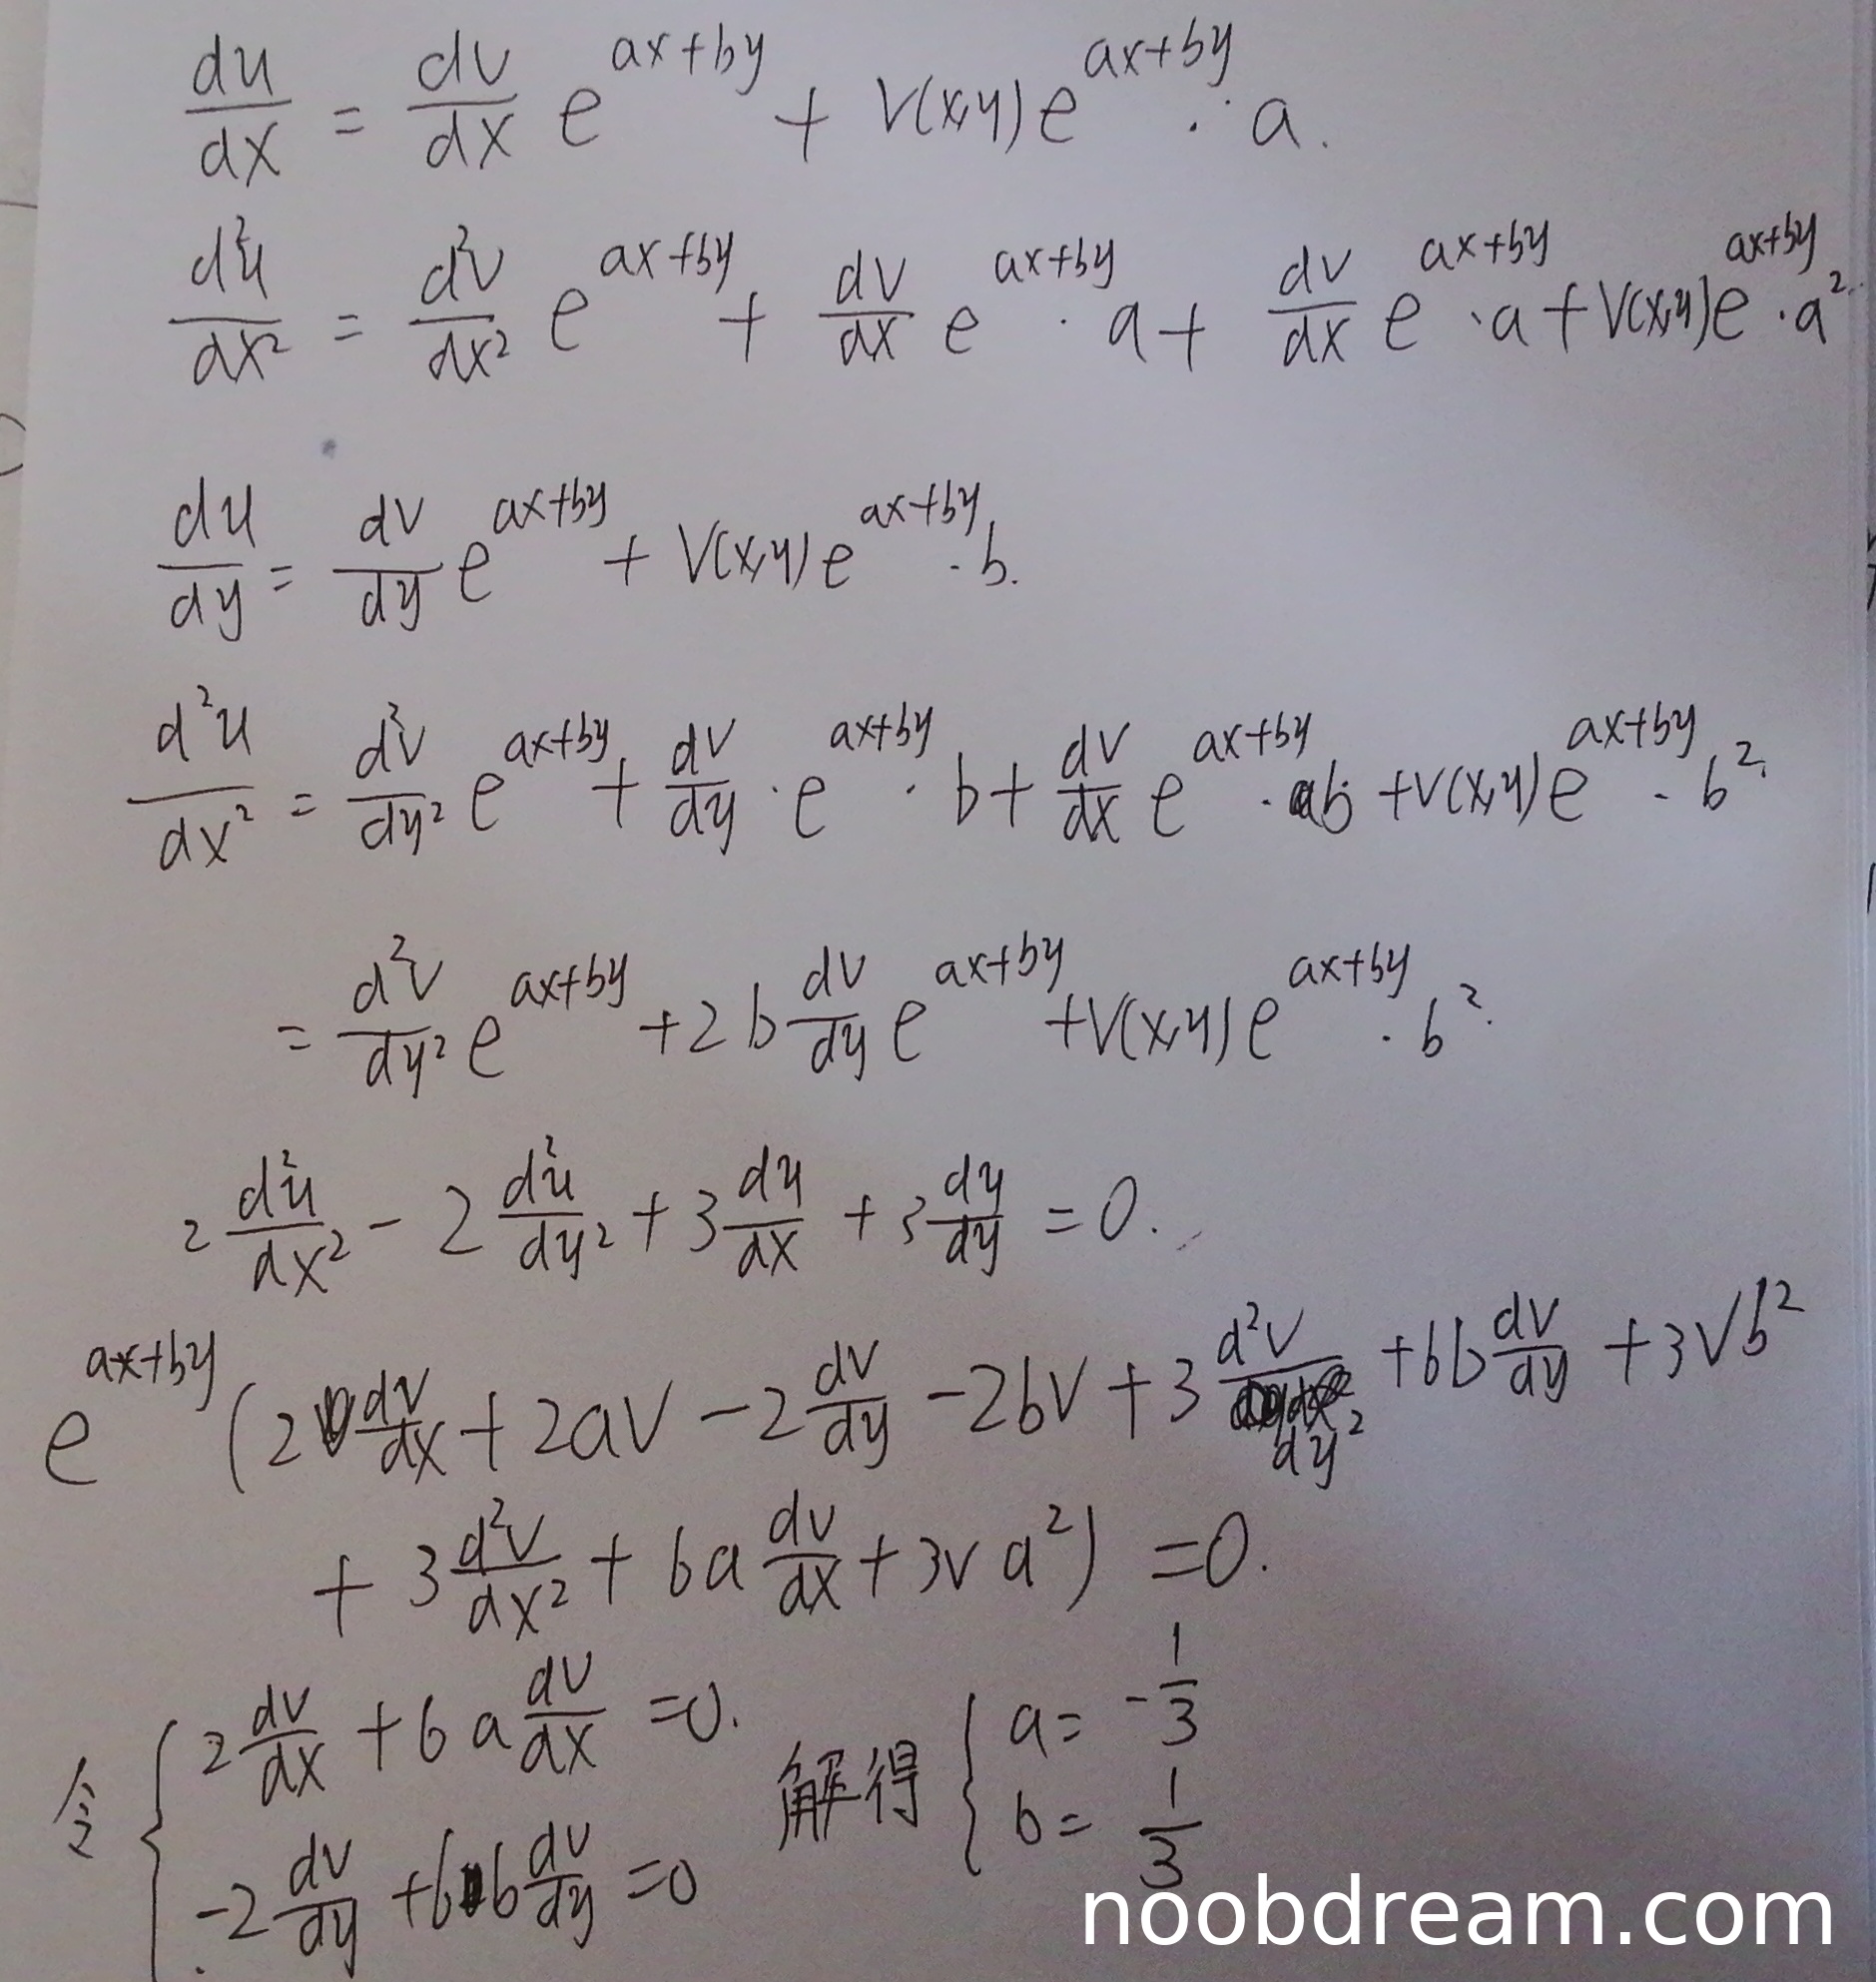 du/dx = dv/dx e^(ax+by) + V(x,y) e^(ax+by) · a.
d²u/dx² = d²v/dx² e^(ax+by) + dv/dx e^(ax+by) · a + dv/dx e^(ax+by) · a + V(x,y) e^(ax+by) · a².
du/dy = dv/dy e^(ax+by) + V(x,y) e^(ax+by) · b.
d²u/dx² = d²v/dy² e^(ax+by) + dv/dy · e^(ax+by) · b + dv/dx e^(ax+by) · b + V(x,y) e^(ax+by) · b².
= d²v/dy² e^(ax+by) + 2b dv/dy e^(ax+by) + V(x,y) e^(ax+by) · b².
2 d²u/dx² - 2 d²u/dy² + 3 du/dx + 3 du/dy = 0.
e^(ax+by) (2 dv/dx + 2av - 2 dv/dy - 2bv + 3 d²v/dy² + 6b dv/dy + 3Vb²
+ 3 d²v/dx² + 6a dv/dx + 3v a²) = 0.
令 { 2 dv/dx + 6a dv/dx = 0. 解得 { a = -1/3
-2 dv/dy + 6b dv/dy = 0 b = 1/3
noobdream.com